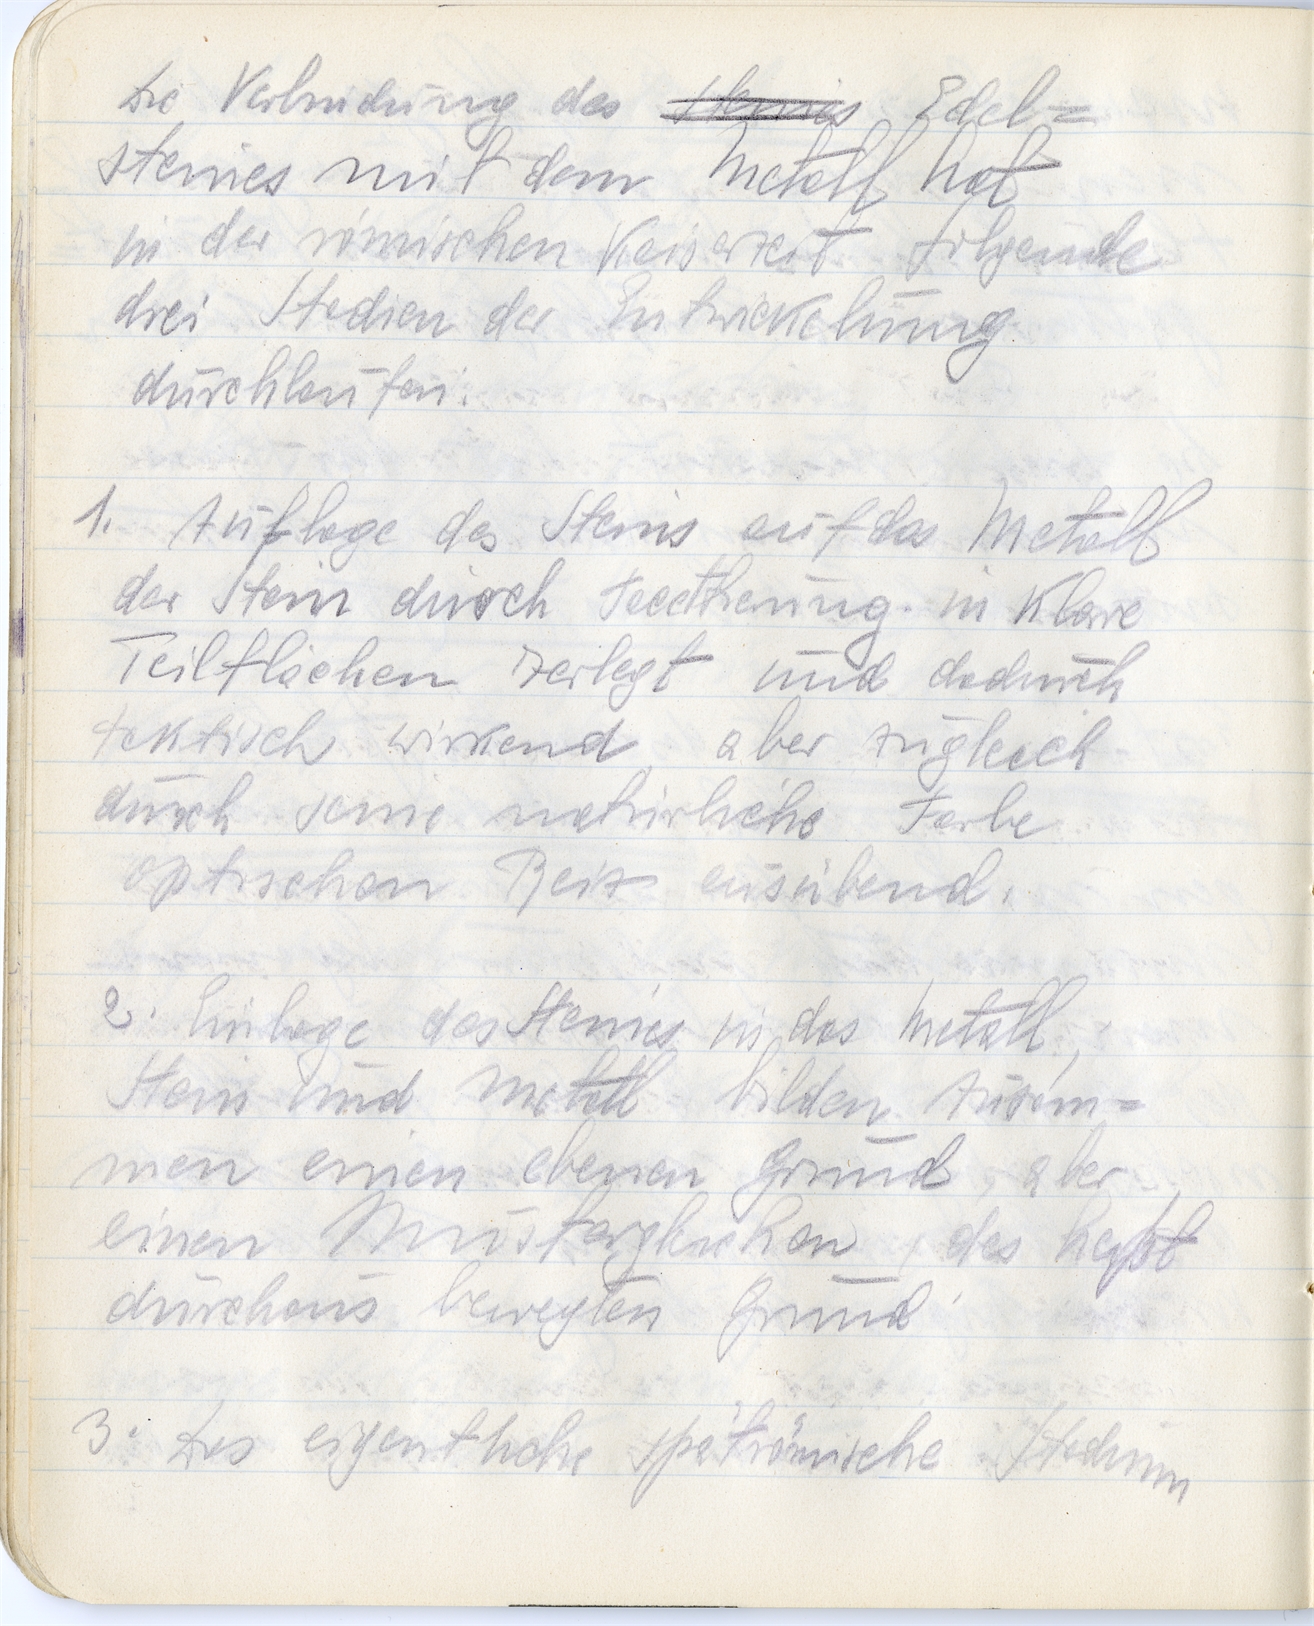 Die Verbindung des Steines Edel=
steines mit dem Metall hat
in der römischen Kaiserzeit folgende
drei Stadien der Entwickelung
durchlaufen:
1. Auflage des Steins auf das Metall
der Stein durch Facettierung in klare
Teilflächen zerlegt und dadurch
taktisch wirkend, aber zugleich
durch seine natürliche Farbe
optischen Reiz ausübend.
2. Einlage des Steines in das Metall,
Stein und Metall bilden zusam=
men einen ebenen Grund, aber
einen Mustergleichen, das heißt
durchaus bewegten Grund.
3. Das eigentliche spätrömische Stadium